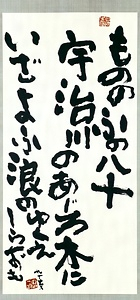 ものゝふの八十
宇治川のあじろ木に
いざよふ浪のゆくゑ
しらずも